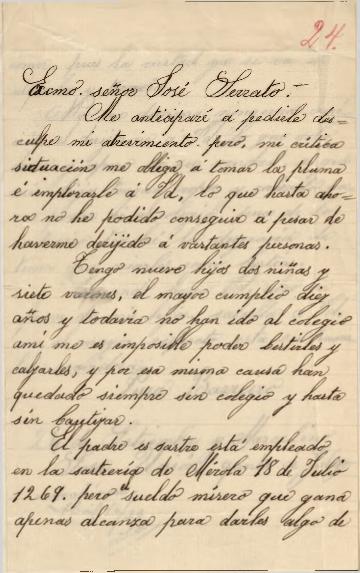 24.
Exmo. señor José Serrato.-
Me anticiparé á pedirle des=
culpe mi atrevimiento. pero, mi critica
situación me obliga á tomar la pluma
é implorarle á Vd, lo que hasta aho=
ra no he podido conseguir á pesar de
haverme derijido á vastantes personas.
Tengo nueve hijos dos niñas y
siete varones, el mayor cumplio diez
años y todavía no han ido al colegio
amí me es imposible poder bestirles y
calzarles, y por esa misma causa han
quedado siempre sin colegio y hasta
sin bautizar.
El padre es sastre está empleado
en la sastreria de Mérola 18 de Julio
1269. pero el sueldo misero que gana
apenas alcanza para darles algo de